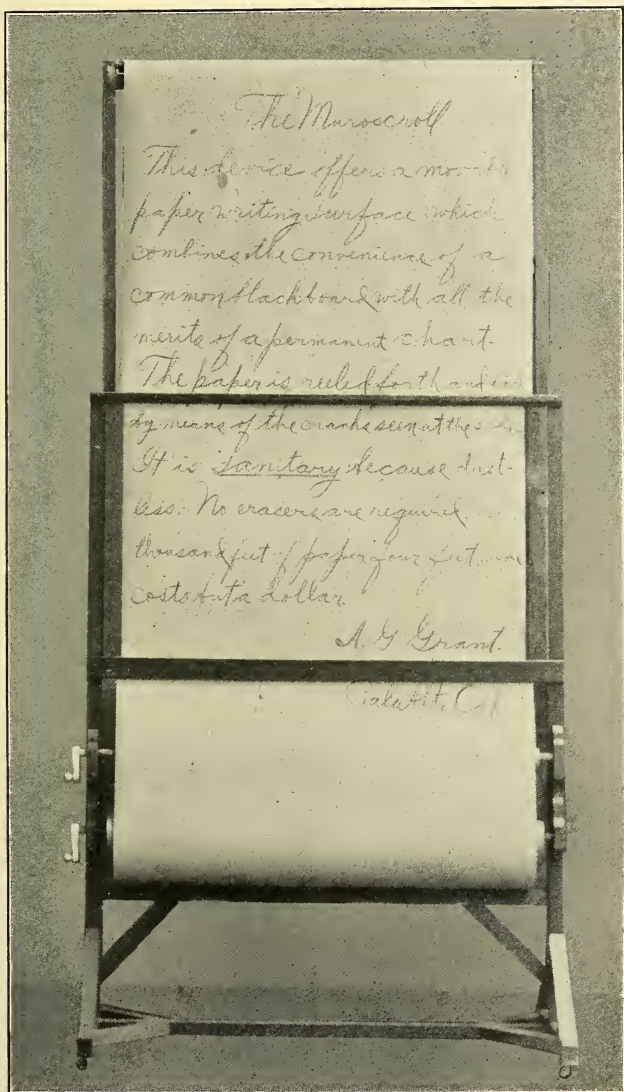 The Muroscroll
This device offers a
paper writing surface which
combines the convenience of a
common blackboard with all the
merits of a permanent chart.
The paper is reeled forth and
by means of the cranks seen at the
It is sanitary because dust-
less. No erasers are required
thousand feet of paper four feet
costs but a dollar.
A. G. Grant.